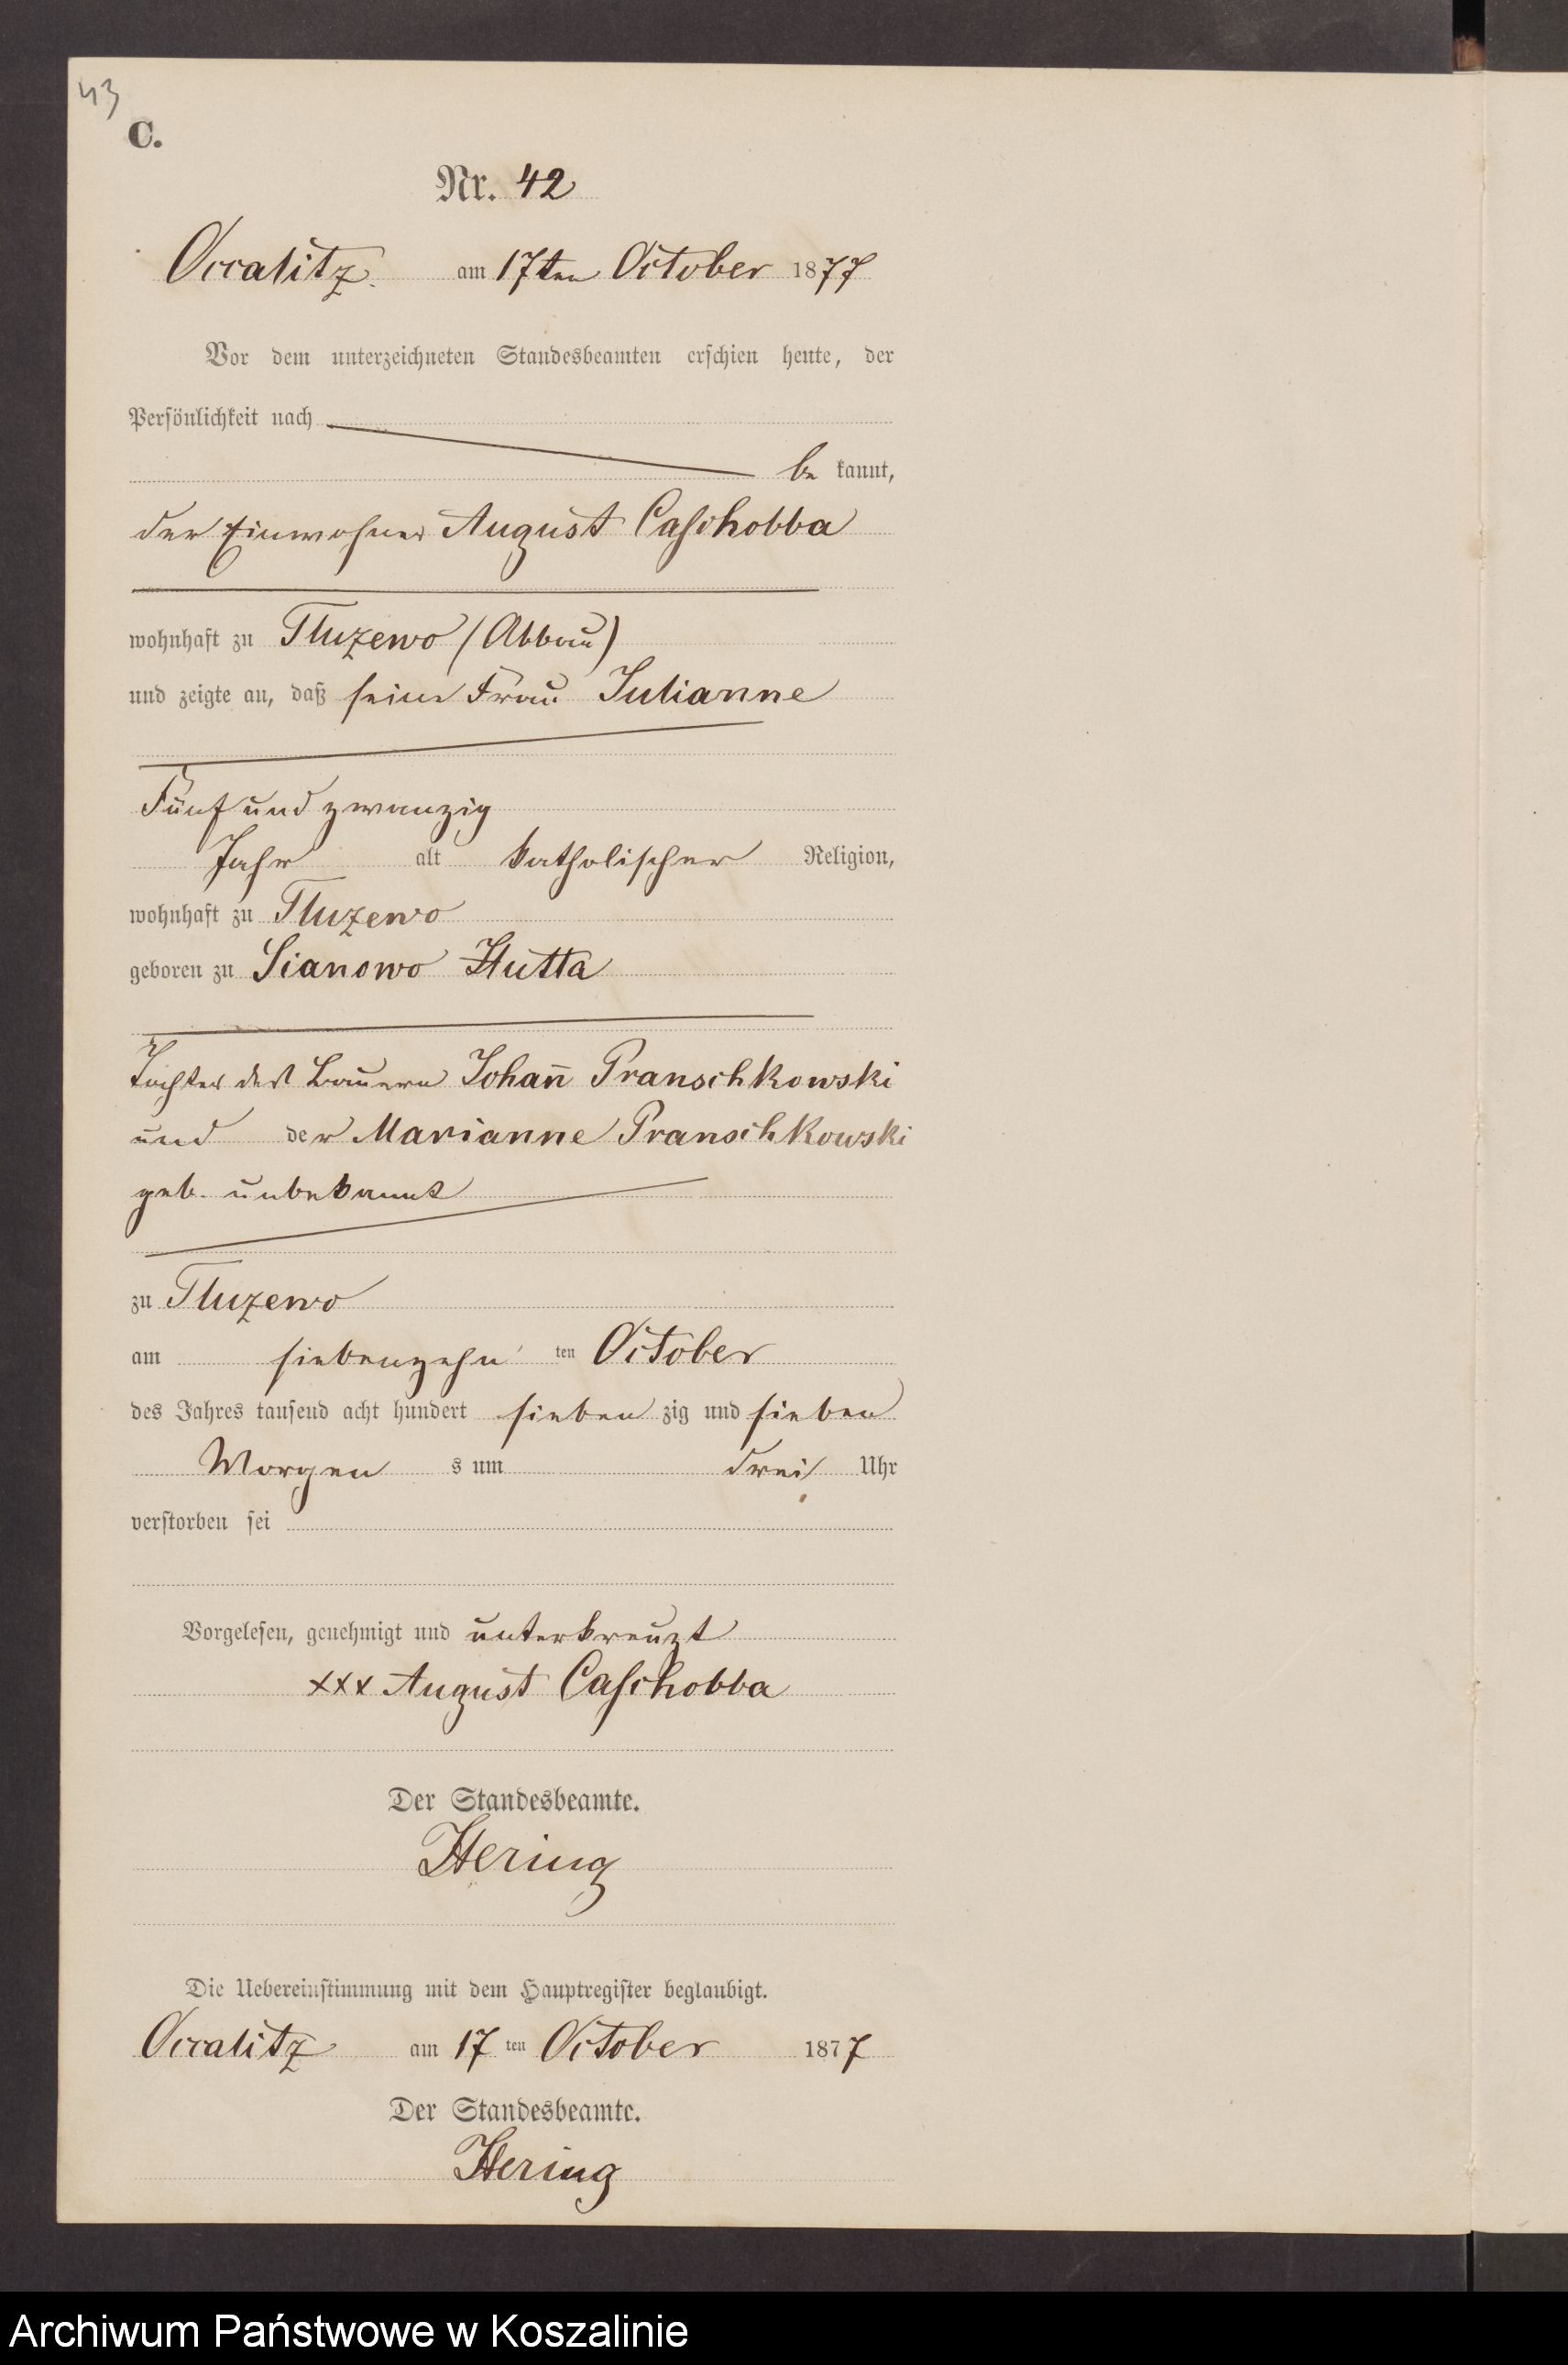 43
C.
Nr. 42
Occalitz am 17ten October 1877
Vor dem unterzeichneten Standesbeamten erschien heute, der
Persönlichkeit nach
be kannt,
der Einwohner August Caschobba
wohnhaft zu Tluzewo (Abbau)
und zeigte an, daß seine Frau Julianne
Fünf und zwanzig
Jahr alt katholischer Religion,
wohnhaft zu Tluzewo
geboren zu Sianowo Hutta
Tochter des Bauern Johan̄ Pranschkowski
und der Marianne Pranschkowski
geb. unbekannt
zu Tluzewo
am siebenzehn ten October
des Jahres tausend acht hundert sieben zig und sieben
Morgen s um drei Uhr
verstorben sei
Vorgelesen, genehmigt und unterkreuzt
xxx August Caschobba
Der Standesbeamte.
Hering
Die Uebereinstimmung mit dem Hauptregister beglaubigt.
Occalitz am 17 ten October 1877
Der Standesbeamte.
Hering
Archiwum Państwowe w Koszalinie